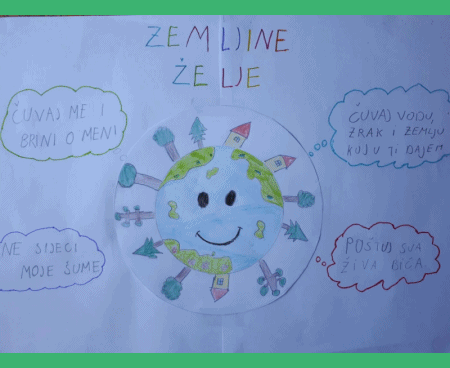 ZEMLJINE
ŽELJE
ČUVAJ ME I
BRINI O MENI
ČUVAJ VODU,
ZRAK I ZEMLJU
KOJU TI DAJEM
NE SIJECI
MOJE ŠUME
POŠTUJ SVA
ŽIVA BIĆA